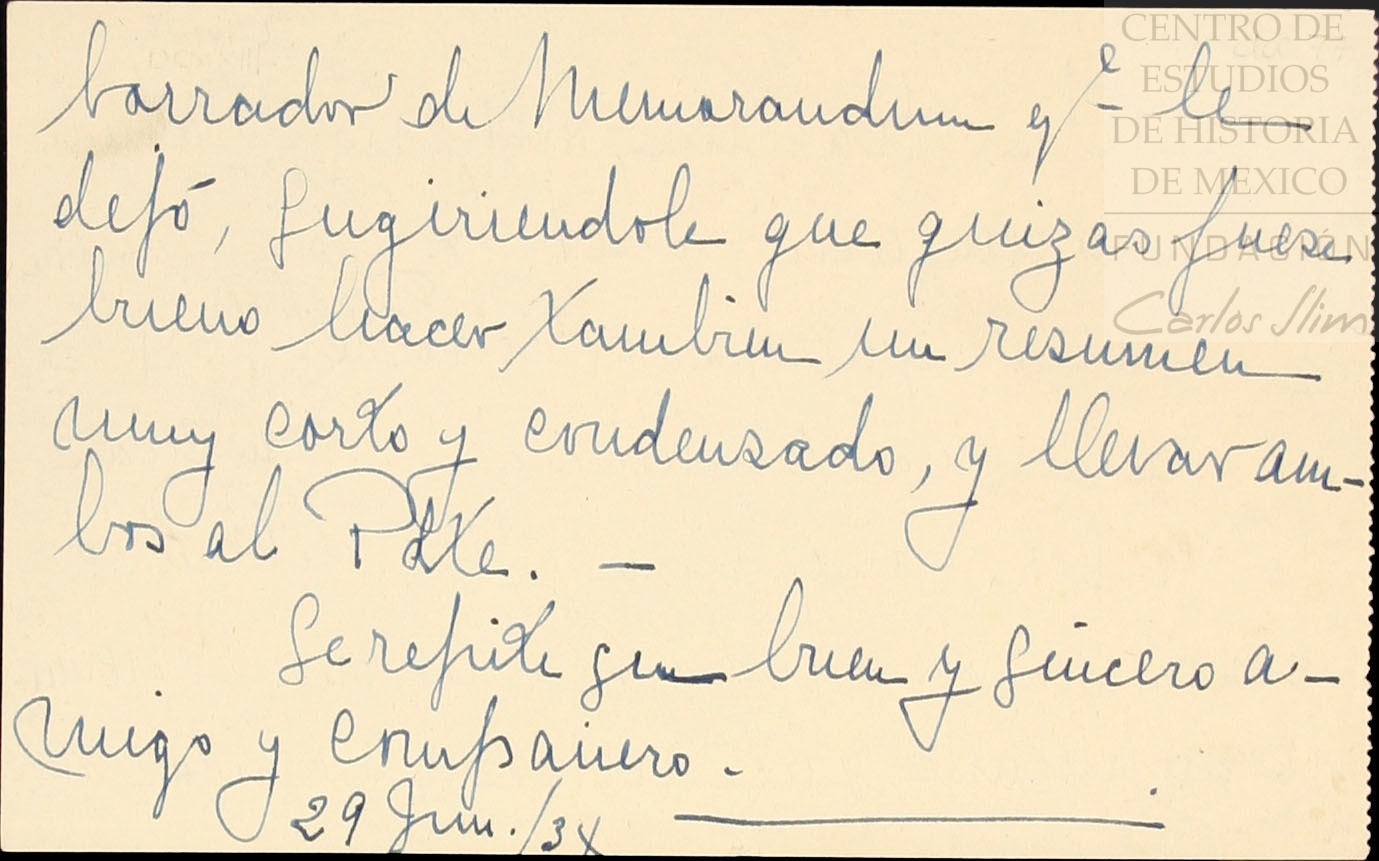 borrador de Memorandum qe le
dejó, sugiriendole que quizas fuese
bueno hacer tambien un resumen
muy corto y condensado, y llevar am-
bos al Pdte. —
Se repite su buen y sincero a-
migo y compañero.
29 Jun. /34
CENTRO DE
ESTUDIOS
DE HISTORIA
DE MEXICO
FUNDACIÓN
Carlos Slim